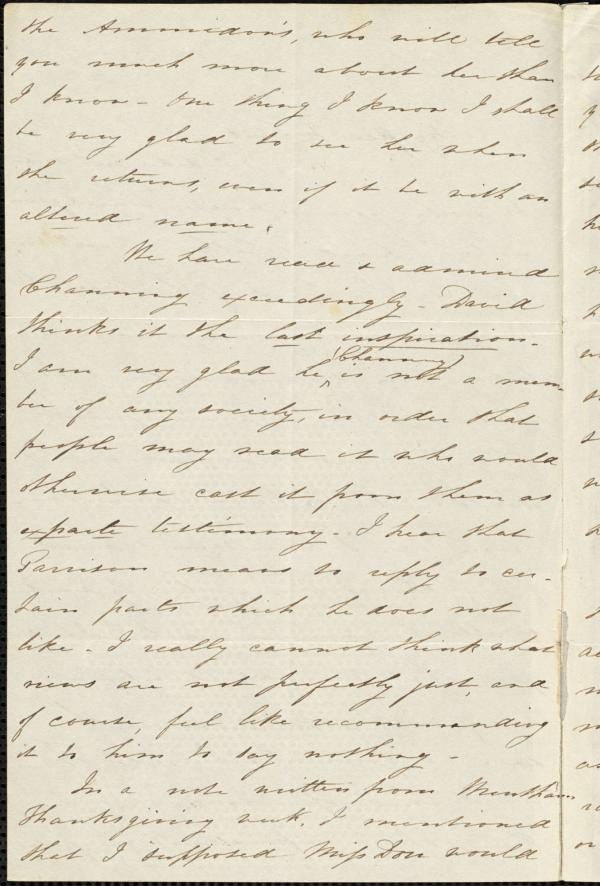 the Ammidon's, who will tell
you much more about her than
I know - One thing I know I shall
be very glad to see her when
she returns, even if it be with an
altered name.
We have read & admired
Channing exceedingly - David
thinks it the last inspiration.
(Channing)
I am very glad he is not a mem-
ber of any society, in order that
people may read it who would
otherwise cast it from them as
exparte testimony - I hear that
Garrison means to reply to cer-
tain parts which he does not
like - I really cannot think what
views are not perfectly just, and
of course, feel like recommending
it to him to say nothing -
In a note written from
Thanksgiving week, I mentioned
that I supposed Miss Dou would